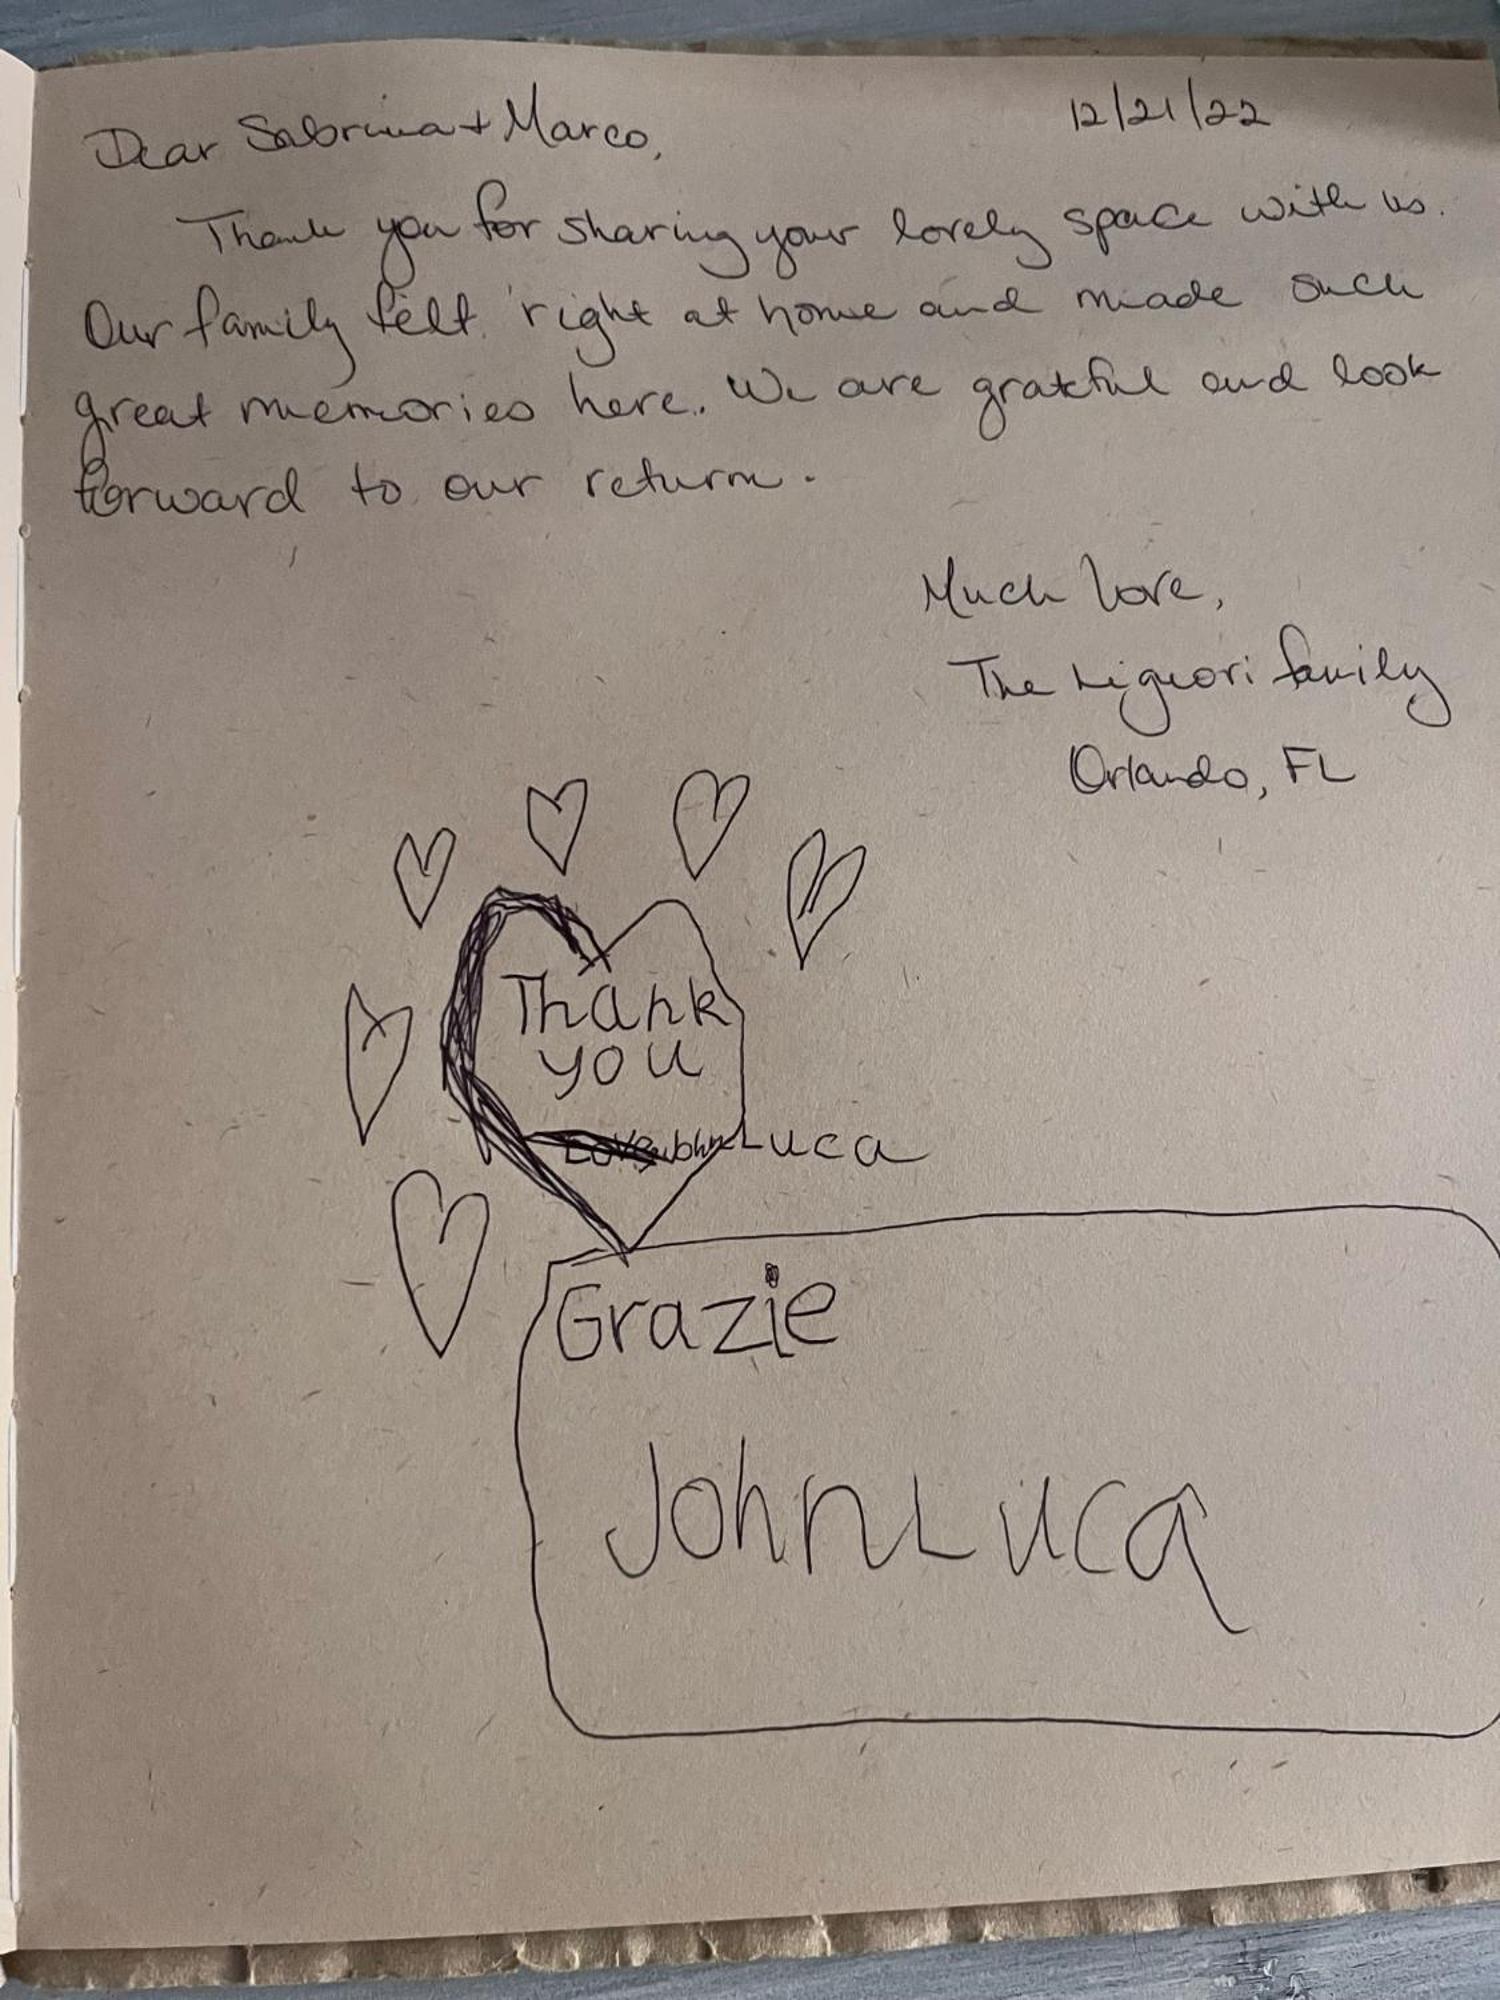 12/21/22
Dear Sabrina + Marco,
Thank you for sharing your lovely space with us.
Our family felt right at home and made such
great memories here. We are grateful and look
forward to our return.
Much love,
The Liguori family
Orlando, FL
Thank
you
Love JohnLuca
Grazie
JohnLuca